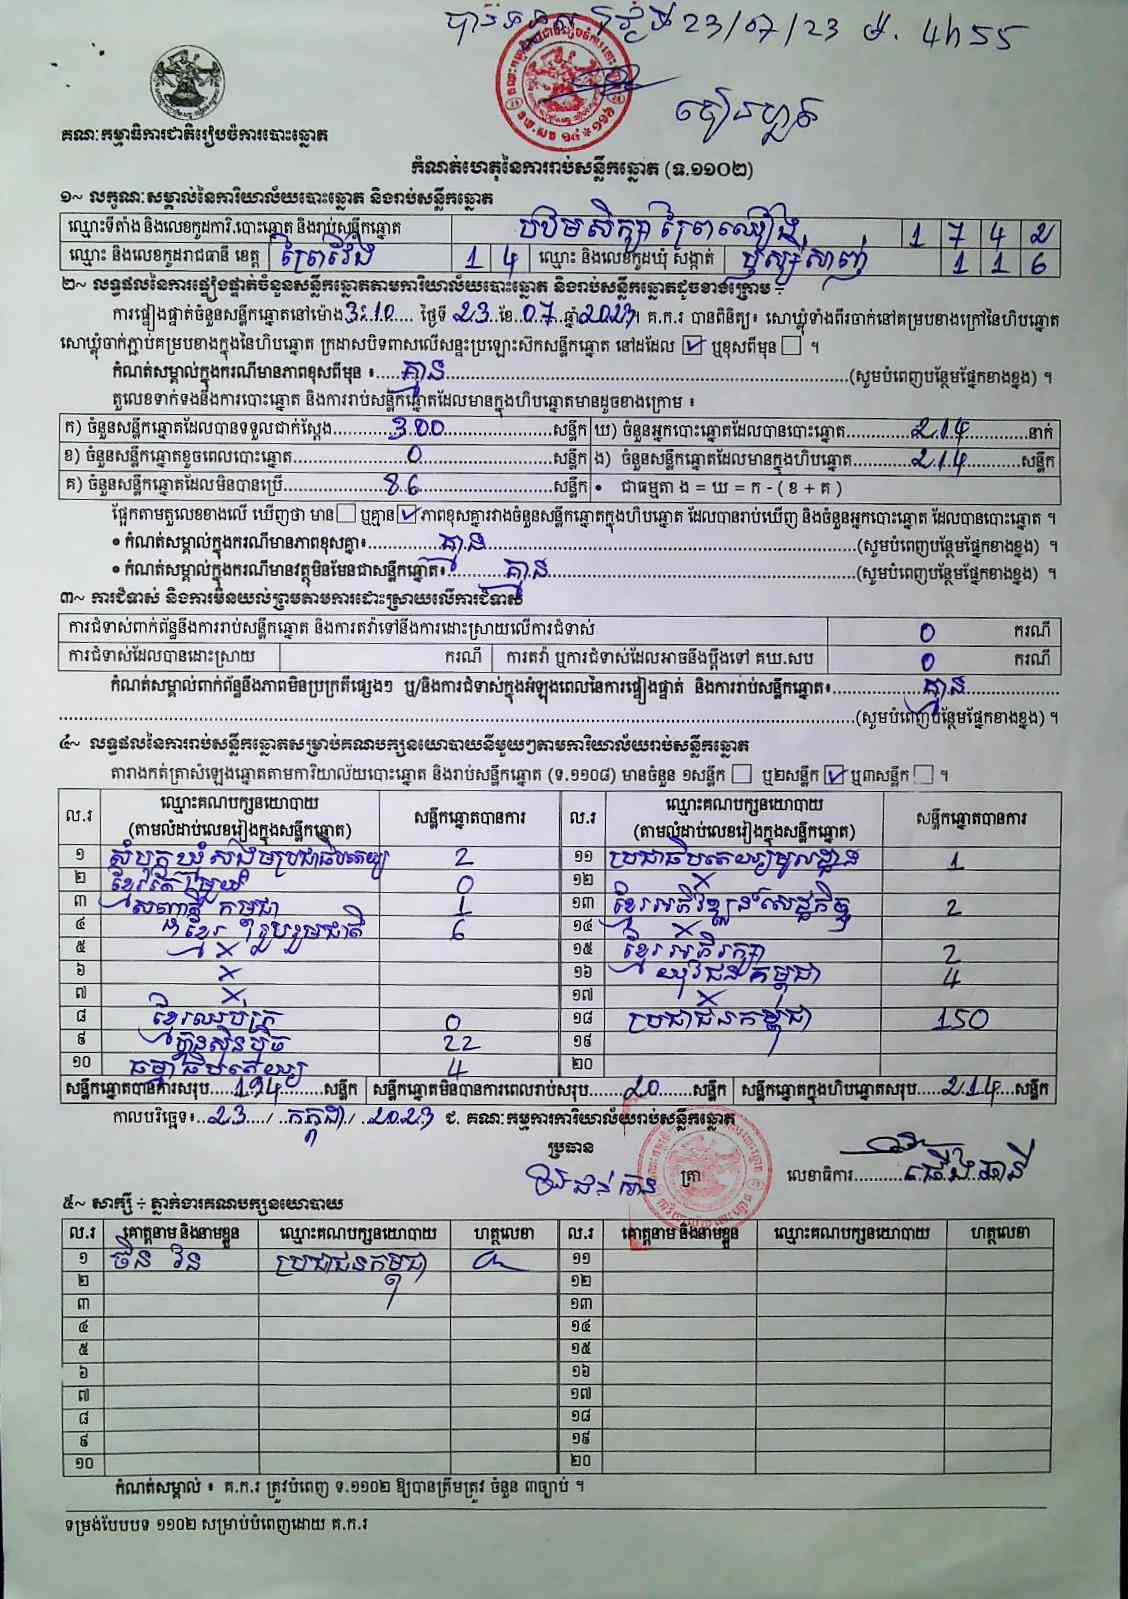 23/07/23 ម. 4h55
គណៈកម្មាធិការជាតិរៀបចំការបោះឆ្នោត
កំណត់ហេតុនៃការរាប់សន្លឹកឆ្នោត (ទ.១១០២)
១~ លក្ខណៈសម្គាល់នៃការិយាល័យបោះឆ្នោត និងរាប់សន្លឹកឆ្នោត
ឈ្មោះទីតាំង និងលេខកូដការិ.បោះឆ្នោត និងរាប់សន្លឹកឆ្នោត បឋមសិក្សា ព្រៃឈ្លើង 1 7 4 2
ឈ្មោះ និងលេខកូដរាជធានី ខេត្ត ព្រៃវែង 1 4 ឈ្មោះ និងលេខកូដឃុំ សង្កាត់ ឫស្សីសាញ់ 1 1 6
២~ លទ្ធផលនៃការផ្ទៀងផ្ទាត់ចំនួនសន្លឹកឆ្នោតតាមការិយាល័យបោះឆ្នោត និងរាប់សន្លឹកឆ្នោតដូចខាងក្រោម ÷
ការផ្ទៀងផ្ទាត់ចំនួនសន្លឹកឆ្នោតនៅម៉ោង 3:10 ថ្ងៃទី 23 ខែ 07 ឆ្នាំ 2023។ គ.ក.រ បានពិនិត្យ៖ សោឃ្លុំទាំងពីរចាក់នៅគម្របខាងក្រៅនៃហិបឆ្នោត
សោឃ្លុំចាក់ភ្ជាប់គម្របខាងក្នុងនៃហិបឆ្នោត ក្រដាសបិទពាសលើសន្ទះប្រឡោះសឹកសន្លឹកឆ្នោត នៅដដែល ☑ ឬខុសពីមុន ☐ ។
កំណត់សម្គាល់ក្នុងករណីមានភាពខុសពីមុន ៖ គ្មាន (សូមបំពេញបន្ថែមផ្នែកខាងខ្នង) ។
តួលេខទាក់ទងនឹងការបោះឆ្នោត និងការរាប់សន្លឹកឆ្នោតដែលមានក្នុងហិបឆ្នោតមានដូចខាងក្រោម ៖
ក) ចំនួនសន្លឹកឆ្នោតដែលបានទទួលជាក់ស្តែង 300 សន្លឹក ឃ) ចំនួនអ្នកបោះឆ្នោតដែលបានបោះឆ្នោត 214 នាក់
ខ) ចំនួនសន្លឹកឆ្នោតខូចពេលបោះឆ្នោត 0 សន្លឹក ង) ចំនួនសន្លឹកឆ្នោតដែលមានក្នុងហិបឆ្នោត 214 សន្លឹក
គ) ចំនួនសន្លឹកឆ្នោតដែលមិនបានប្រើ 86 សន្លឹក • ជាធម្មតា ង = ឃ = ក - ( ខ + គ )
ផ្អែកតាមតួលេខខាងលើ ឃើញថា មាន ☐ ឬគ្មាន ☑ ភាពខុសគ្នារវាងចំនួនសន្លឹកឆ្នោតក្នុងហិបឆ្នោត ដែលបានរាប់ឃើញ និងចំនួនអ្នកបោះឆ្នោត ដែលបានបោះឆ្នោត ។
• កំណត់សម្គាល់ក្នុងករណីមានភាពខុសគ្នា៖ គ្មាន (សូមបំពេញបន្ថែមផ្នែកខាងខ្នង) ។
• កំណត់សម្គាល់ក្នុងករណីមានវត្ថុមិនមែនជាសន្លឹកឆ្នោត៖ គ្មាន (សូមបំពេញបន្ថែមផ្នែកខាងខ្នង) ។
៣~ ការជំទាស់ និងការមិនយល់ព្រមតាមការដោះស្រាយលើការជំទាស់
ការជំទាស់ពាក់ព័ន្ធនឹងការរាប់សន្លឹកឆ្នោត និងការតវ៉ាទៅនឹងការដោះស្រាយលើការជំទាស់ 0 ករណី
ការជំទាស់ដែលបានដោះស្រាយ ករណី ការតវ៉ា ឬការជំទាស់ដែលអាចនឹងប្តឹងទៅ គឃ.សប 0 ករណី
កំណត់សម្គាល់ពាក់ព័ន្ធនឹងភាពមិនប្រក្រតីផ្សេងៗ ឬ/និងការជំទាស់ក្នុងអំឡុងពេលនៃការផ្ទៀងផ្ទាត់ និងការរាប់សន្លឹកឆ្នោត៖ គ្មាន
(សូមបំពេញបន្ថែមផ្នែកខាងខ្នង) ។
៤~ លទ្ធផលនៃការរាប់សន្លឹកឆ្នោតសម្រាប់គណបក្សនយោបាយនីមួយៗតាមការិយាល័យរាប់សន្លឹកឆ្នោត
តារាងកត់ត្រាសំឡេងឆ្នោតតាមការិយាល័យបោះឆ្នោត និងរាប់សន្លឹកឆ្នោត (ទ.១១០៨) មានចំនួន ១សន្លឹក ☐ ឬ២សន្លឹក ☑ ឬ៣សន្លឹក ☐ ។
ល.រ ឈ្មោះគណបក្សនយោបាយ (តាមលំដាប់លេខរៀងក្នុងសន្លឹកឆ្នោត) សន្លឹកឆ្នោតបានការ ល.រ ឈ្មោះគណបក្សនយោបាយ (តាមលំដាប់លេខរៀងក្នុងសន្លឹកឆ្នោត) សន្លឹកឆ្នោតបានការ
១ សំបុកឃ្មុំសង្គមប្រជាធិបតេយ្យ 2 ១១ ប្រជាធិបតេយ្យមូលដ្ឋាន 1
២ ខ្មែរតែមួយ 0 ១២ ×
៣ សញ្ជាតិ កម្ពុជា 1 ១៣ ខ្មែរអភិវឌ្ឍន៍សេដ្ឋកិច្ច 2
៤ ខ្មែរ រួបរួមជាតិ 6 ១៤ ×
៥ × ១៥ ខ្មែរអភិរក្ស 2
៦ × ១៦ យុវជនកម្ពុជា 4
៧ × ១៧ ×
៨ ខ្មែរឈប់ក្រ 0 ១៨ ប្រជាជនកម្ពុជា 150
៩ ហ្វ៊ុនស៊ិនប៉ិច 22 ១៩
១០ ធម្មាធិបតេយ្យ 4 ២០
សន្លឹកឆ្នោតបានការសរុប 194 សន្លឹក សន្លឹកឆ្នោតមិនបានការពេលរាប់សរុប 20 សន្លឹក សន្លឹកឆ្នោតក្នុងហិបឆ្នោតសរុប 214 សន្លឹក
កាលបរិច្ឆេទ៖ 23 / កក្កដា / 2023 ជ. គណៈកម្មការការិយាល័យរាប់សន្លឹកឆ្នោត
ប្រធាន
ត្រា លេខាធិការ
៥~ សាក្សី ÷ ភ្នាក់ងារគណបក្សនយោបាយ
ល.រ គោត្តនាម និងនាមខ្លួន ឈ្មោះគណបក្សនយោបាយ ហត្ថលេខា ល.រ គោត្តនាម និងនាមខ្លួន ឈ្មោះគណបក្សនយោបាយ ហត្ថលេខា
១ ប្រជាជនកម្ពុជា ១១
២ ១២
៣ ១៣
៤ ១៤
៥ ១៥
៦ ១៦
៧ ១៧
៨ ១៨
៩ ១៩
១០ ២០
កំណត់សម្គាល់ ៖ គ.ក.រ ត្រូវបំពេញ ទ.១១០២ ឱ្យបានត្រឹមត្រូវ ចំនួន ៣ច្បាប់ ។
ទម្រង់បែបបទ ១១០២ សម្រាប់បំពេញដោយ គ.ក.រ